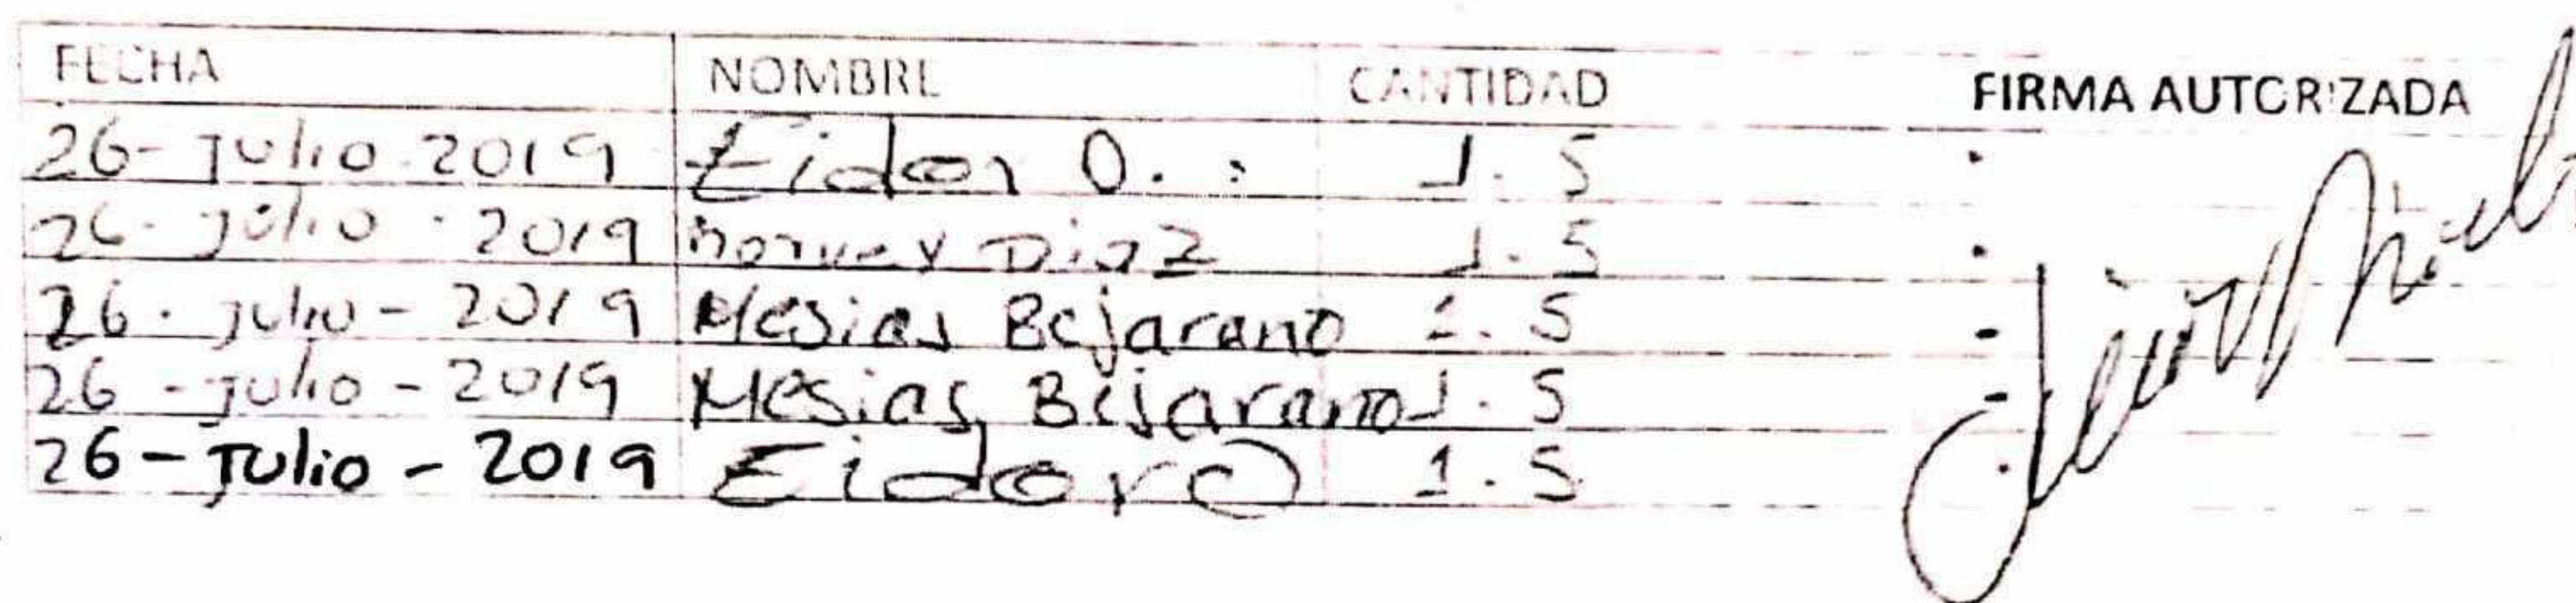 FECHA NOMBRE CANTIDAD FIRMA AUTORIZADA
26-Julio-2019 Eider O. 1.5
26-Julio-2019 Diaz 1.5
26-Julio-2019 Mesias Bejarano 1.5
26-Julio-2019 Mesias Bejarano 1.5
26-Julio-2019 1.5